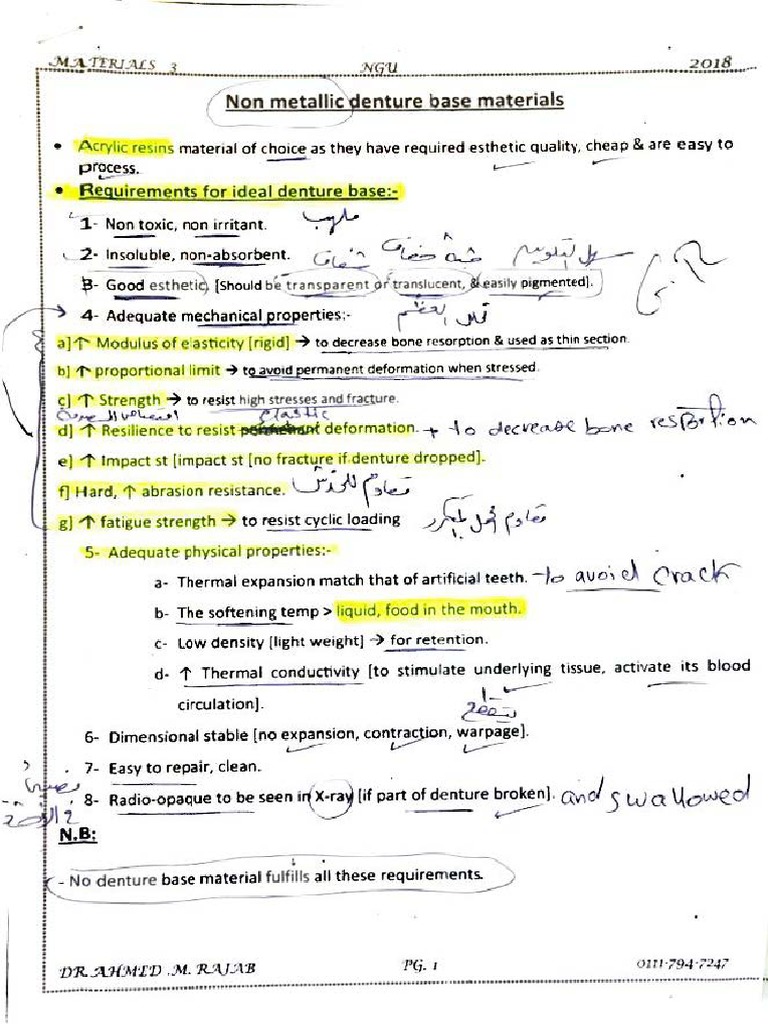 MATERIALS 3 NGU 2018
Non metallic denture base materials
• Acrylic resins material of choice as they have required esthetic quality, cheap & are easy to
process.
• Requirements for ideal denture base:-
1- Non toxic, non irritant. ملهب
2- Insoluble, non-absorbent. شفاف خفاف سهل التلوين
3- Good esthetic, [Should be transparent or translucent, & easily pigmented].
4- Adequate mechanical properties:-
a] ↑ Modulus of elasticity [rigid] → to decrease bone resorption & used as thin section.
b] ↑ proportional limit → to avoid permanent deformation when stressed.
c] ↑ Strength → to resist high stresses and fracture.
elastic
d] ↑ Resilience to resist permenant deformation. + to decrease bone resportion
e] ↑ Impact st [impact st [no fracture if denture dropped].
f] Hard, ↑ abrasion resistance. مقاوم للخدش
g] ↑ fatigue strength → to resist cyclic loading مقاوم
5- Adequate physical properties:-
a- Thermal expansion match that of artificial teeth. - to avoid crack
b- The softening temp > liquid, food in the mouth.
c- Low density [light weight] → for retention.
d- ↑ Thermal conductivity [to stimulate underlying tissue, activate its blood
circulation].
6- Dimensional stable [no expansion, contraction, warpage].
7- Easy to repair, clean.
8- Radio-opaque to be seen in X-ray [if part of denture broken]. and swallowed
N.B:
- No denture base material fulfills all these requirements.
DR.AHMED .M. RAJAB PG. 1 0111-794-7247